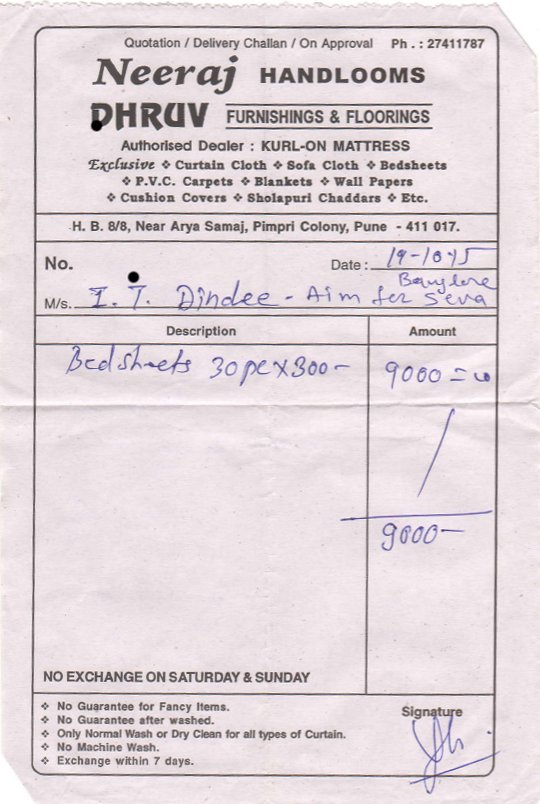 Quotation / Delivery Challan / On Approval Ph. : 27411787
Neeraj HANDLOOMS
DHRUV FURNISHINGS & FLOORINGS
Authorised Dealer : KURL-ON MATTRESS
Exclusive ❖ Curtain Cloth ❖ Sofa Cloth ❖ Bedsheets
❖ P.V.C. Carpets ❖ Blankets ❖ Wall Papers
❖ Cushion Covers ❖ Sholapuri Chaddars ❖ Etc.
H. B. 8/8, Near Arya Samaj, Pimpri Colony, Pune - 411 017.
No. Date : 19-10-15
Banglore
M/s. I. T. Dindee - Aim for Seva
Description Amount
Bedsheets 30pc x 300- 9000=00
9000-
NO EXCHANGE ON SATURDAY & SUNDAY
❖ No Guarantee for Fancy Items.
❖ No Guarantee after washed.
❖ Only Normal Wash or Dry Clean for all types of Curtain.
❖ No Machine Wash.
❖ Exchange within 7 days.
Signature